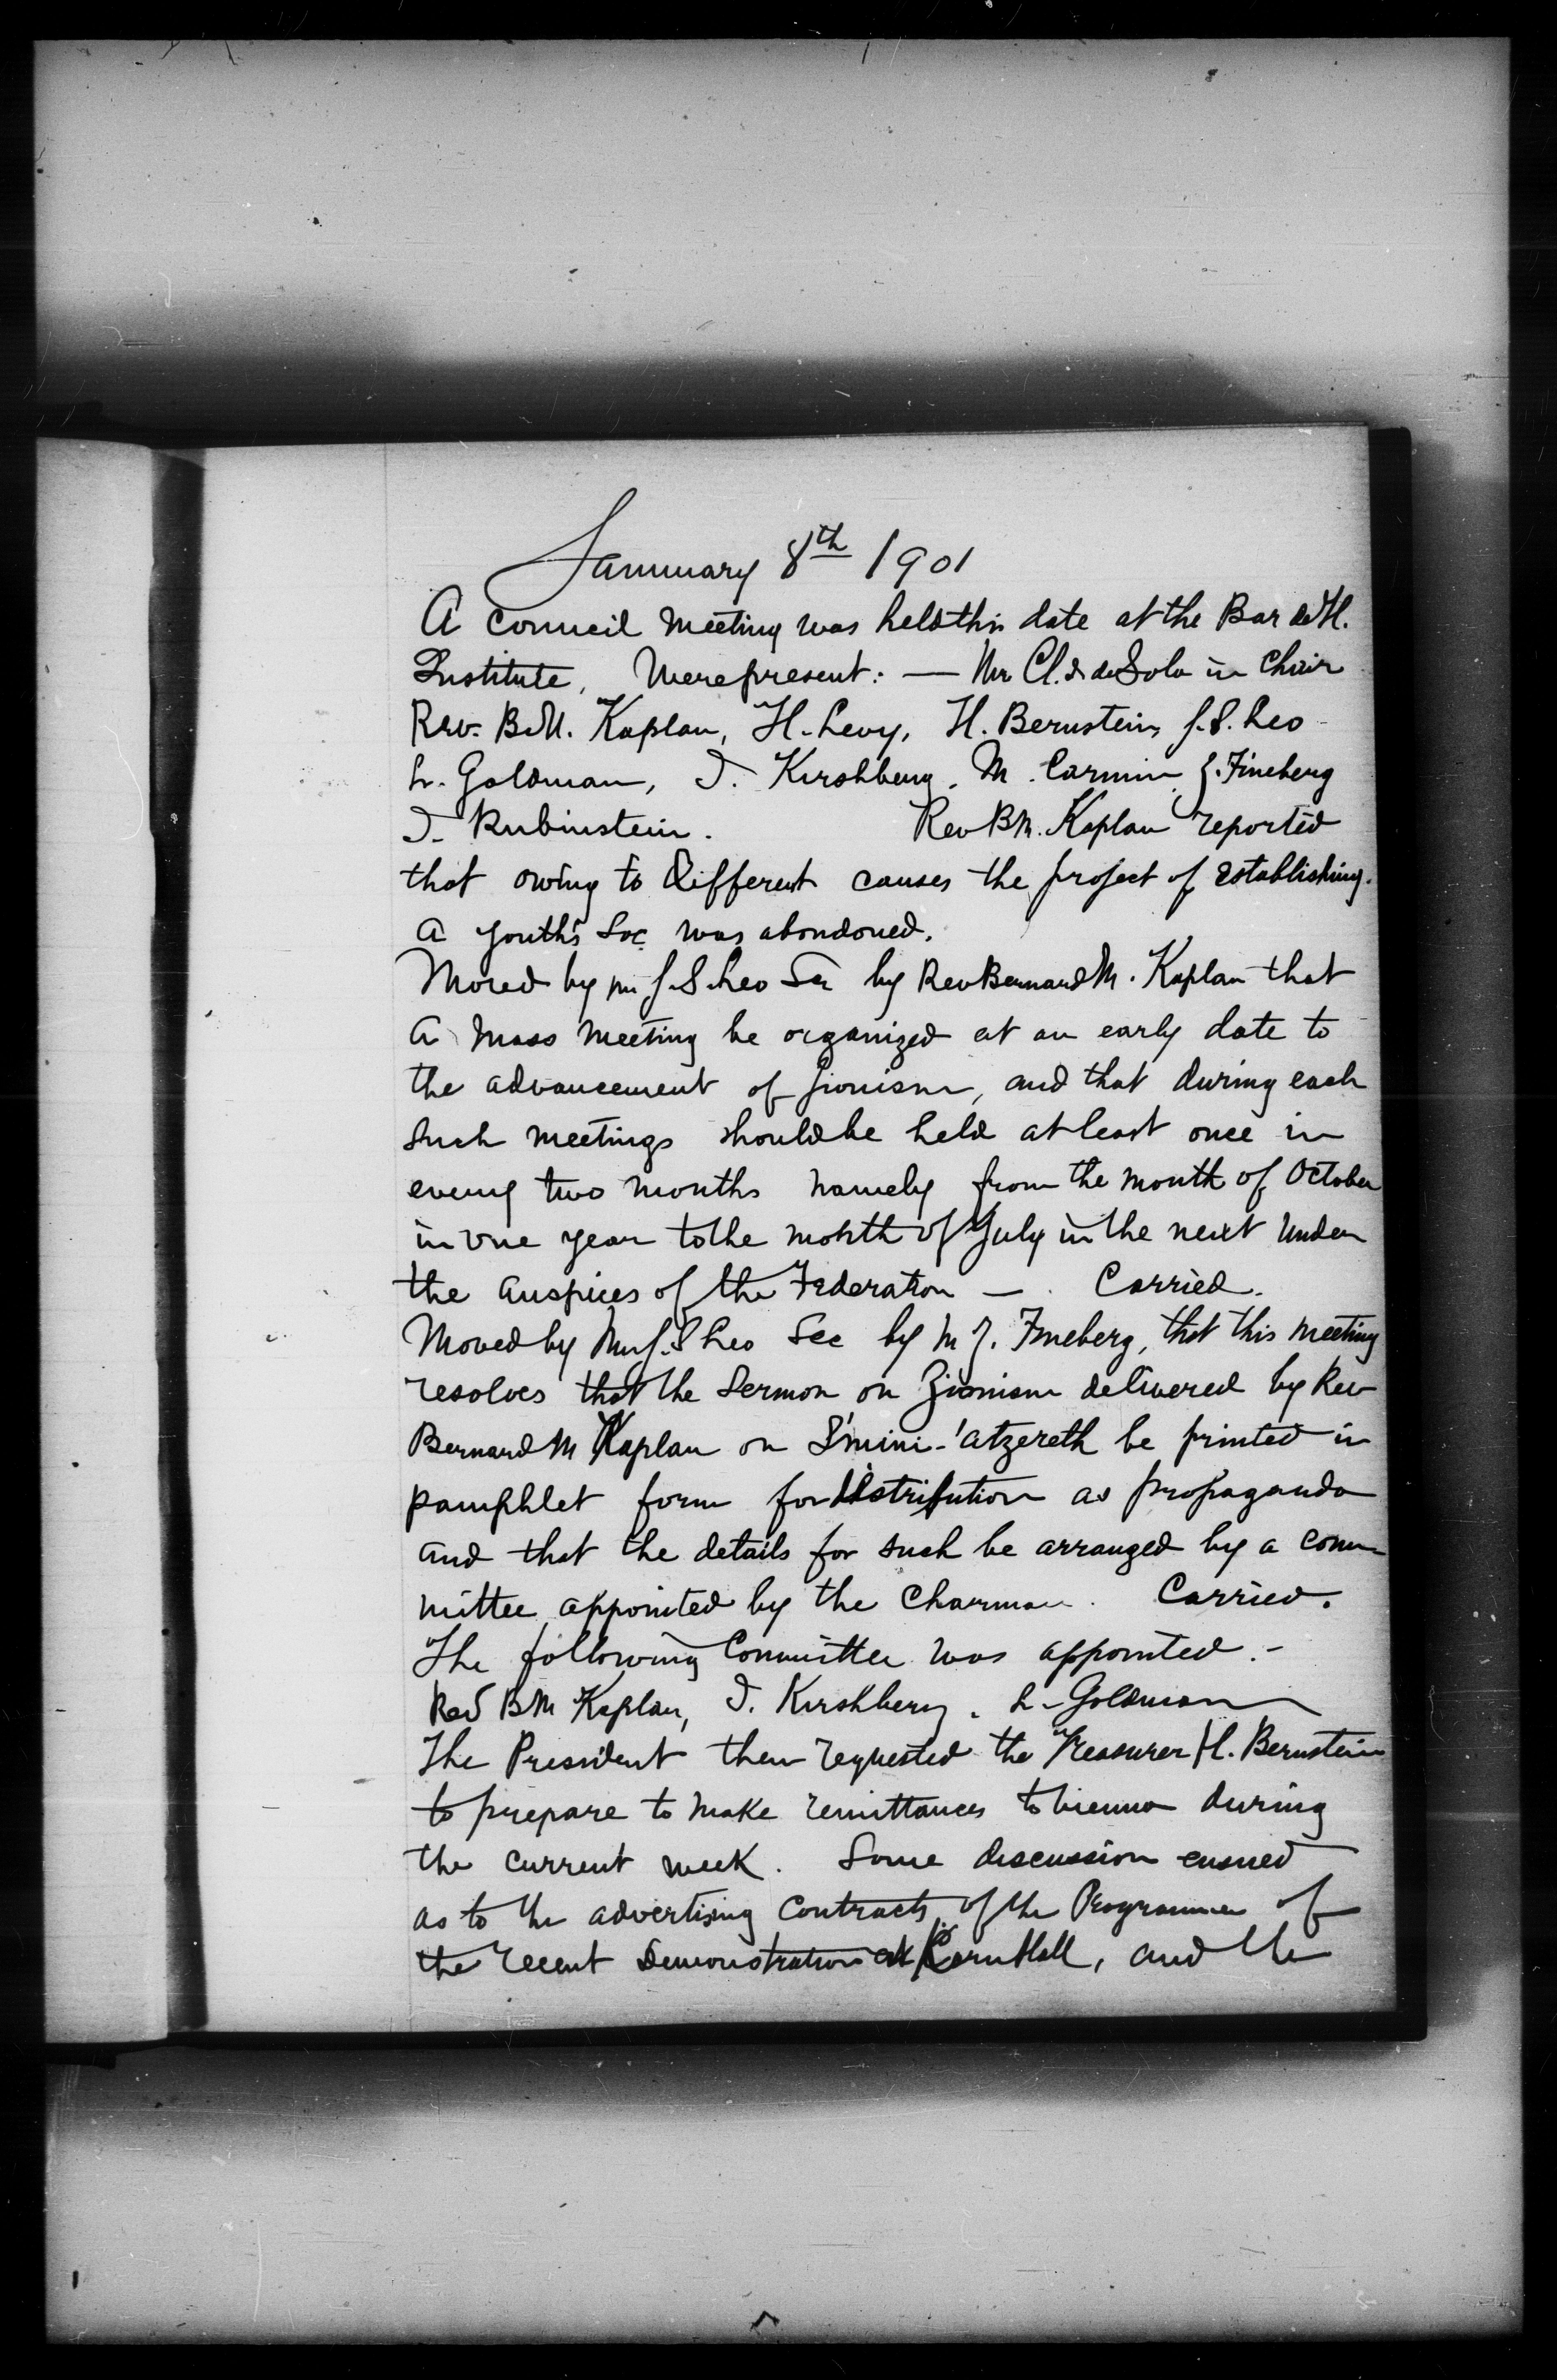 January 8th 1901
A Council Meeting was held this date at the Bar de H.
Institute, Were present: — Mr Cl. I. de Sola in Chair
Rev. B. M. Kaplan, H. Levy, H. Bernstein, J. S. Leo
L. Goldman, I. Kirshberg, M. Carmin, Z. Fineberg
I. Rubinstein. Rev B M. Kaplan reported
that owing to different causes the project of establishing
a youth's Soc was abondoned.
Moved by Mr J. S. Leo Sec by Rev Bernard M. Kaplan that
a Mass Meeting be organized at an early date to
the advancement of Zionism, and that during each
such meetings should be held at least once in
every two months namely from the month of October
in one year to the month of July in the next under
the auspices of the Federation — . Carried.
Moved by Mr J. S Leo Sec by M Z. Fineberg, that this meeting
resolves that the Sermon on Zionism delivered by Rev
Bernard M Kaplan on S'mini-'atzereth be printed in
pamphlet form for distribution as propaganda
and that the details for such be arranged by a com-
mittee appointed by the Chairman. Carried.
The following Committee was appointed. -
Rev B M Kaplan, I. Kirshberg, L. Goldman
The President then requested the Treasurer H. Bernstein
to prepare to make remittances to Vienna during
the current week. Some discussion ensued
as to the advertising contracts of the Programme of
the recent Demonstration at Karn Hall, and the